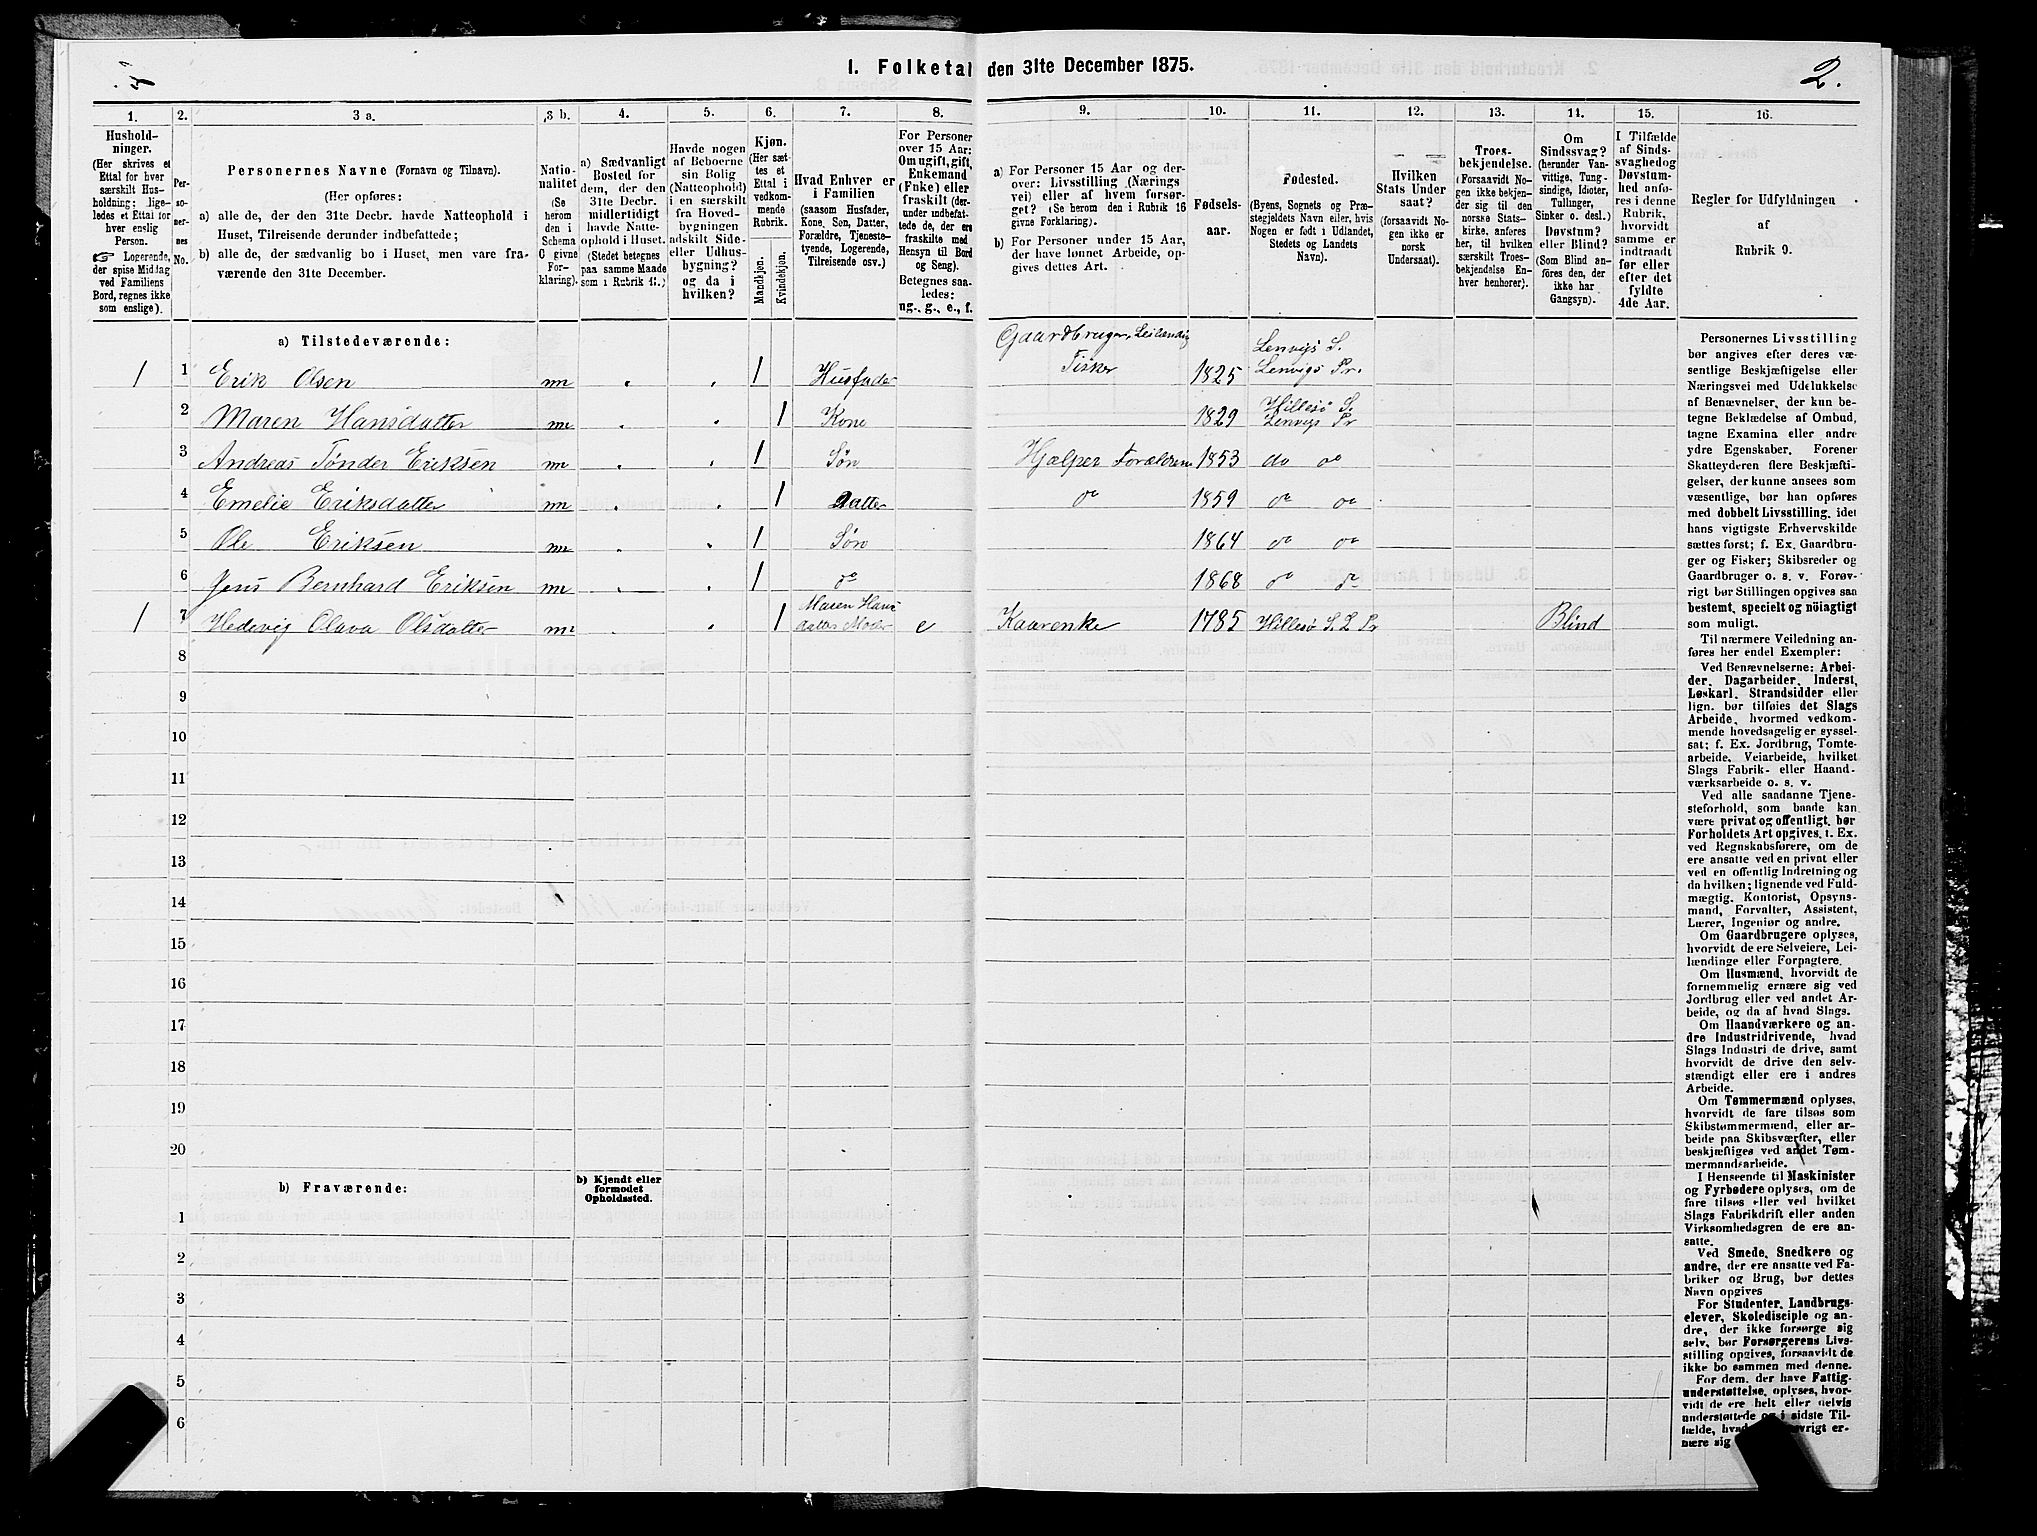 1. Folketal den 31te December 1875.
2.
1.
2.
3 a.
3 b.
4.
5.
6.
7.
8.
9.
10.
11.
12.
13.
14.
15.
16.
Hushold-
ninger.
(Her skrives et
Ettal for hver
særskilt Hus-
holdning; lige-
ledes et Ettal for
hver enslig
Person.
☞ Logerende,
der spise Middag
ved Familiens
Bord, regnes ikke
som enslige).
Per-
so-
ner-
nes
No.
Personernes Navne (Fornavn og Tilnavn).
(Her opføres:
a) alle de, der den 31te Decbr. havde Natteophold i
Huset, Tilreisende derunder indbefattede;
b) alle de, der sædvanlig bo i Huset, men vare fra-
værende den 31te December.
Natio-
nalitet
(Se
herom
den i
Schema
C givne
For-
klaring).
a) Sædvanligt
Bosted for
dem, der den
31te Decbr.
midlertidigt
havde Natte-
ophold i Huset.
(Stedet betegnes
paa samme Maade
som i Rubrik 11.)
Havde nogen
af Beboerne
sin Bolig
(Natteophold)
i en særskilt
fra Hoved-
bygningen
adskilt Side-
eller Udhus-
bygning?
og da i
hvilken?
Kjøn.
(Her sæt-
tes et
Ettal i
vedkom-
mende
Rubrik.
Mandkjøn.
Kvindekjøn.
Hvad Enhver er
i Familien
(saasom Husfader,
Kone, Søn, Datter,
Forældre, Tjeneste-
tyende, Logerende,
Tilreisende osv.)
For Personer
over 15 Aar:
Om ugift, gift,
Enkemand
(Enke) eller
fraskilt (der-
under indbefat-
tede de, der ere
fraskilte med
Hensyn til Bord
og Seng).
Betegnes saa-
ledes:
ug., g., e., f.
a) For Personer 15 Aar og der-
over: Livsstilling (Nærings
vei) eller af hvem forsør-
get? (Se herom den i Rubrik 16
givne Forklaring).
b) For Personer under 15 Aar,
der have lønnet Arbeide, op-
gives dettes Art.
Fødsels-
aar.
Fødested.
(Byens, Sognets og Præ-
stegjeldets Navn eller, hvis
Nogen er født i Udlandet,
Stedets og Landets
Navn).
Hvilken
Stats Under
saat?
(forsaavidt No-
gen ikke er
norsk
Undersaat).
Troes-
bekjendelse.
(Forsaavidt No-
gen ikke bekjen-
der sig til den
norske Stats-
kirke, anføres
her, til hvilken
særskilt Troes-
bekjendelse En-
hver henhører).
Om
Sindssvag?
(herunder Van-
vittige, Tung-
sindige, Idioter,
Tullinger,
Sinker o. desl.)
Døvstum?
eller Blind?
(Som Blind an-
føres den, der
ikke har
Gangsyn).
I Tilfælde
af Sinds-
svaghed og
Døvstum-
hed anfø-
res i denne
Rubrik,
hvorvidt
samme er
indtraadt
før eller
efter det
fyldte
4de Aar.
Regler for Udfyldningen
af
Rubrik 9.
a) Tilstedeværende:
1 1 Erik Olsen nn 1 Husfader Gaardbruger, Leilænding Fisker 1825 Lenvigs S. Lenvigs Pr.
2 Maren Hansdatter nn 1 Kone 1829 Hillesø S. Lenvigs Pr
3 Andreas Tønder Eriksen nn 1 Søn Hjælper Forældrene 1853 do do
4 Emelie Eriksdatter nn 1 Datter do 1859 do do
5 Ole Eriksen nn 1 Søn 1864 do do
6 Jens Bernhard Eriksen nn 1 do 1868 do do
1 7 Hedevig Olava Olsdatter nn 1 Maren Hans datters Moder e Kaarenke 1785 Hillesø S. L Pr Blind
8
9
10
11
12
13
14
15
16
17
18
19
20
b) Fraværende:
b) Kjendt eller
formodet
Opholdssted.
1
2
3
4
5
6
Personernes Livsstilling
bør angives efter deres væ-
sentlige Beskjæftigelse eller
Næringsvei med Udelukkelse
af Benævnelser, der kun be-
tegne Beklædelse af Ombud,
tagne Examina eller andre
ydre Egenskaber. Forener
Skatteyderen flere Beskjæfti-
gelser, der kunne ansees som
væsentlige, bør han opføres
med dobbelt Livsstilling, idet
hans vigtigste Erhvervskilde
sættes først; f. Ex. Gaardbru-
ger og Fisker; Skibsreder og
Gaardbruger o. s. v. Forøv-
rigt bør Stillingen opgives saa
bestemt, specielt og nöiagtigt
som muligt.
Til nærmere Veiledning an-
føres her endel Exempler:
Ved Benævnelserne: Arbei-
der, Dagarbeider, Inderst,
Løskarl, Strandsidder eller
lign. bør tilføies det Slags
Arbeide, hvormed vedkom-
mende hovedsagelig er syssel-
sat; f. Ex. Jordbrug, Tomte-
arbeide, Veiarbeide, hvilket
Slags Fabrik- eller Haand-
værksarbeide o. s. v.
Ved alle saadanne Tjene-
steforhold, som baade kan
være privat og offentligt, bør
Forholdets Art opgives, t. Ex.
ved Regnskabsførere, om de
ere ansatte ved en privat eller
ved en offentlig Indretning og
da hvilken; lignende ved Fuld-
mægtig, Kontorist, Opsyns-
mand, Forvalter, Assistent,
Lærer, Ingeniør og andre.
Om Gaardbrugere oplyses,
hvorvidt de ere Selveiere, Lei-
lændinge eller Forpagtere.
Om Husmænd, hvorvidt de
fornemmelig ernære sig ved
Jordbrug eller ved andet Ar-
beide, og da af hvad Slags.
Om Haandværkere og an-
dre Industridrivende, hvad
Slags Industri de drive, samt
hvorvidt de drive den selv-
stændigt eller ere i andres
Arbeide.
Om Tømmermænd oplyses,
hvorvidt de fare tilsøs som
Skibstømmermænd, eller ar-
beide paa Skibsværfter, eller
beskjæftiges ved andet Tøm-
mermandsarbeide.
I Henseende til Maskinister
og Fyrbødere oplyses, om de
fare tilsøs eller ved hvilket
Slags Fabrikdrift eller anden
Virksomhedsgren de ere an-
satte.
Ved Smede, Snedkere og
andre, der ere ansatte ved Fa-
briker og Brug, bør dettes
Navn opgives
For Studenter, Landbrugs-
elever, Skoledisciple og an-
dre, der ikke forsørge sig
selv, bør Forsørgerens Livs-
stilling opgives, forsaavidt de
ikke bo sammen med denne.
For dem, der have Fattig-
understøttelse, oplyses, hvor-
vidt de ere helt eller delvis
understøttede og i sidste Til-
fælde, hvad de forøvrigt er-
nære sig